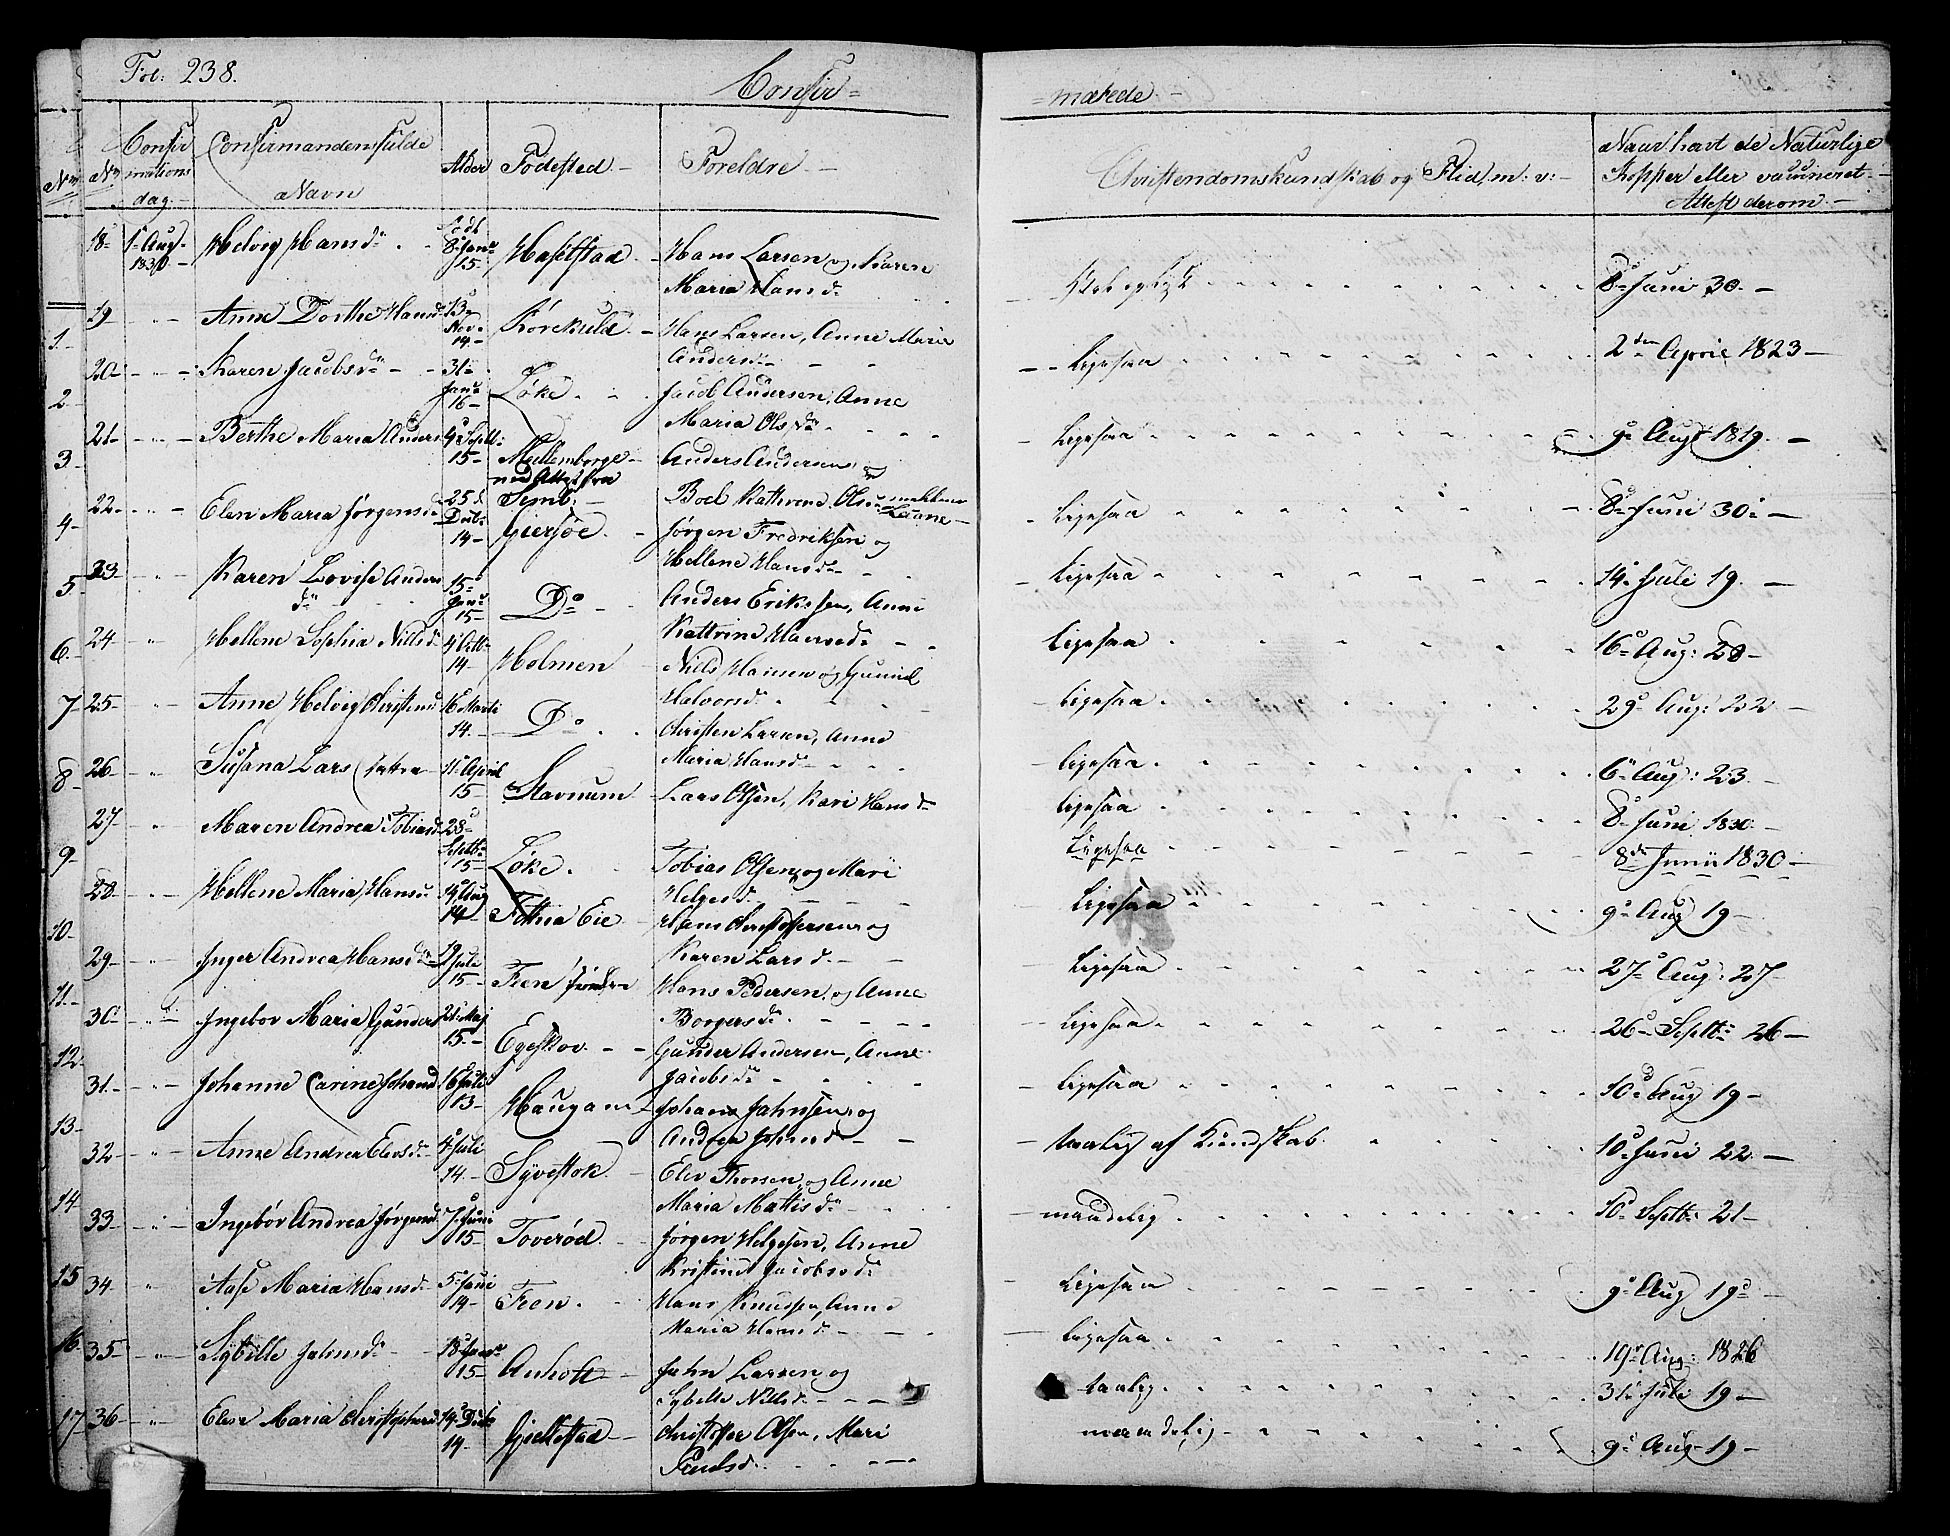 Fol: 238.
Confir=
=merede
Nr
Confirmations dag.
Confirmandens fulde Navn
Alder
Fødested.
Foreldre
Christendomskundskab og Flid, m: v:
Naar havt de Naturlige Kopper eller vaccineret Attest derom.
18 1 Aug. 1830. Helvig Hansd. Født 8 Janu 15 Hans Larsen og Karen Maria Hansd. 8d Juni 30.
19 Anne Dorthe Hansd. 13 Nov. 14 Hans Larsen, Anne Maria Andersd. Ligesaa 2den April 1823
20 Karen Jacobsd. 31 Janu 16 Løke Jacob Andersen, Anne Maria Olsd. Ligesaa 9d Aug 1819.
21 Berthe Maria Anders 4 Septb: 15 Anders Andersen og Boel Kathrine Olsd. Ligesaa 8d Juni 30
22 Elen Maria Jørgensd. 25d Decb: 14 Giersøe Jørgen Fredriksen og Hellene Hansd. Ligesaa 14 Juli 19.
23 Karen Lovise Andersd. 15 Janu 15 Do Anders Eriksen, Anne Kattrine Ligesaa 16 Aug: 28
24 Hellene Sophia Nilsd. 4 Octb 14 Holmen Niels Hansen og Gunild Halvorsd. Ligesaa 29 Aug: 22
25 Anne Helvig Christensd 16 Marti 14. Do Christen Larsen, Anne Maria Hansd. Ligesaa 6 Aug: 23.
26 Susana Lars datter 11 April 15 Stavnum Lars Olsen, Kari Hansd. Ligesaa 8 Juni 1830.
27 Maren Andrea Tobiasd. 28 Septb: 15 Løke. Tobias Olsen og Mari Helgesd. Ligesaa 8de Junii 1830
28 Hellene Maria Hansd 14 Aug 14 Eie Hans Christophersen og Karen Larsd. Ligesaa 9d Aug 19
29 Inger Andrea Hansd. 19 Juli 15 Feen søndre Hans Pedersen og Anne Borgersd. Ligesaa 27d Aug: 27
30 Ingebor Maria Gunders 21 Maj 15 Egeskov. Gunder Andersen, Anne Jacobsd. Ligesaa 26d Septb: 26
31. Johanne Carine Johansd 16 Juli 13 Haugan Johan Jahnsen og Andrea Johansd. Ligesaa 10d Aug 19
32 Anne Andrea Elevsd. 4 Juli 14 Syvestok. Elev Thorsen og Anne Maria Mattisd. taalig af Kundskab. 10 Juni 22
33 Ingebor Andrea Jørgensd. 7 Juni 15 Toverød. Jørgen Helgesen, Anne Kristine Jacobsd. maadelig 10 Septb: 21
34 Aase Maria Hansd. 5 Juni 14 Feen. Hans Knudsen, Anne Maria Hansd. Ligesaa 9d Aug 19
35 Sybille Jahnsd. 18 15 Anholt Jahn Larsen og Sybille Nilsd. Ligesaa 19 Aug: 1826
taalig 31 Juli 19
36 Elen Maria Christophersd 14 Decb 14 Gielstad Christoffer Olsen, Mari Poulsd. maadelig 9d Aug 19
1.
2
3
4
5
6.
7
8
9
10.
11.
12
13
14
15
16.
17